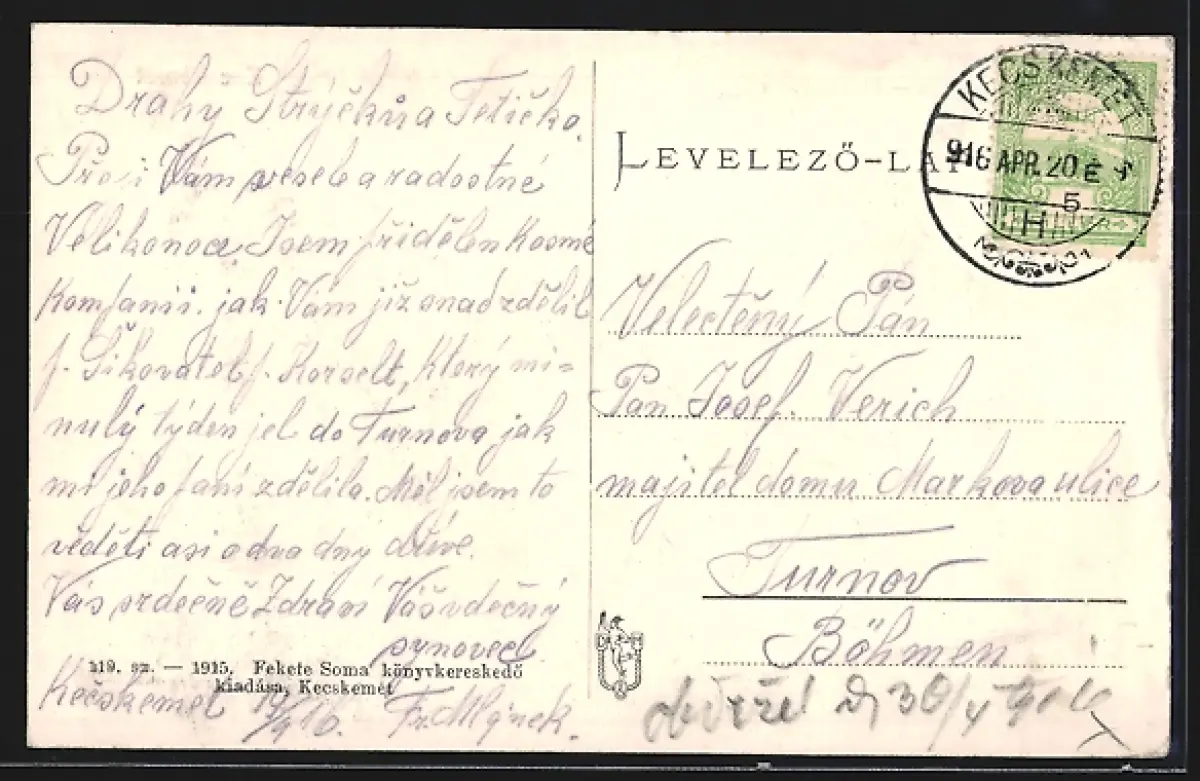 Drahý Strýčků a Tetičko.
Přeji Vám veselé a radostné
Velikonoce. Jsem přidělen Kosmé
Kompanii. jak Vám již snad zdělil
p. Šikovatel p. Korselt, Který mi-
nulý týden jel do Turnova jak
mi jeho paní zdělila. Měl jsem to
věděti asi o dva dny dříve.
Vás srdečně Zdraví Váš vděčný
synovec
119. sz. — 1915. Fekete Soma könyvkereskedő
kiadása, Kecskemét
Kečskemét 19/4 16. Fr. Mlýnek.
LEVELEZŐ-LAP
KECSKEMÉT
916 APR. 20 É
5
H
Velectěný Pán
Pan Josef. Verich
majitel domu Markova ulice
Turnov
Böhmen
obdržel 30/ 1916